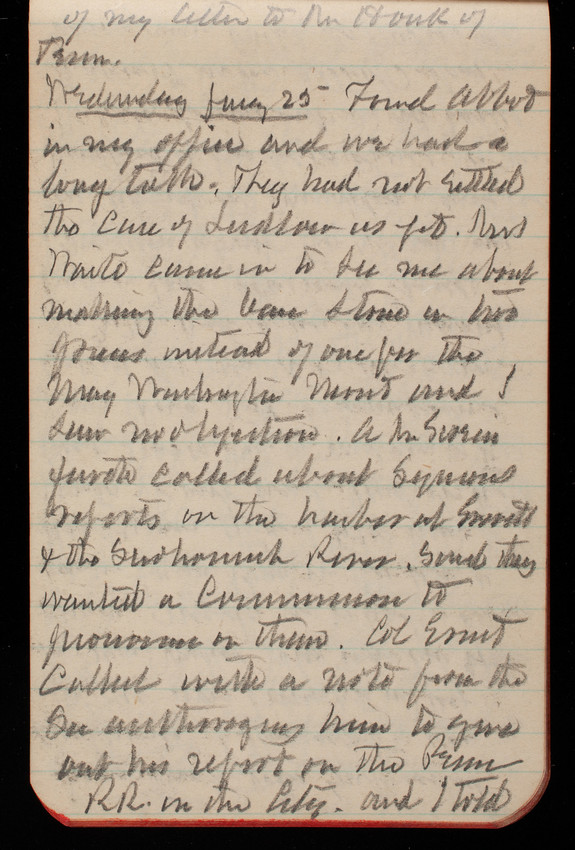 of my letter to Mr Houk of
Penn.
Wednesday Jany 25 Found Abbot
in my office and we had a
long talk. They had not settled
the Case of Ludlow as yet. Mrs
Waite came in to see me about
making the base stone in two
pieces instead of one for the
Mary Washington Mont and I
saw no objection. A Mr
called about Symons
reports on the harbor at Everett
& the Snohomish River. Said they
wanted a Commission to
pronounce on them. Col Ernst
Called with a note from the
Sec authorizing him to give
out his report on the Penn
R.R. in the City. and I told